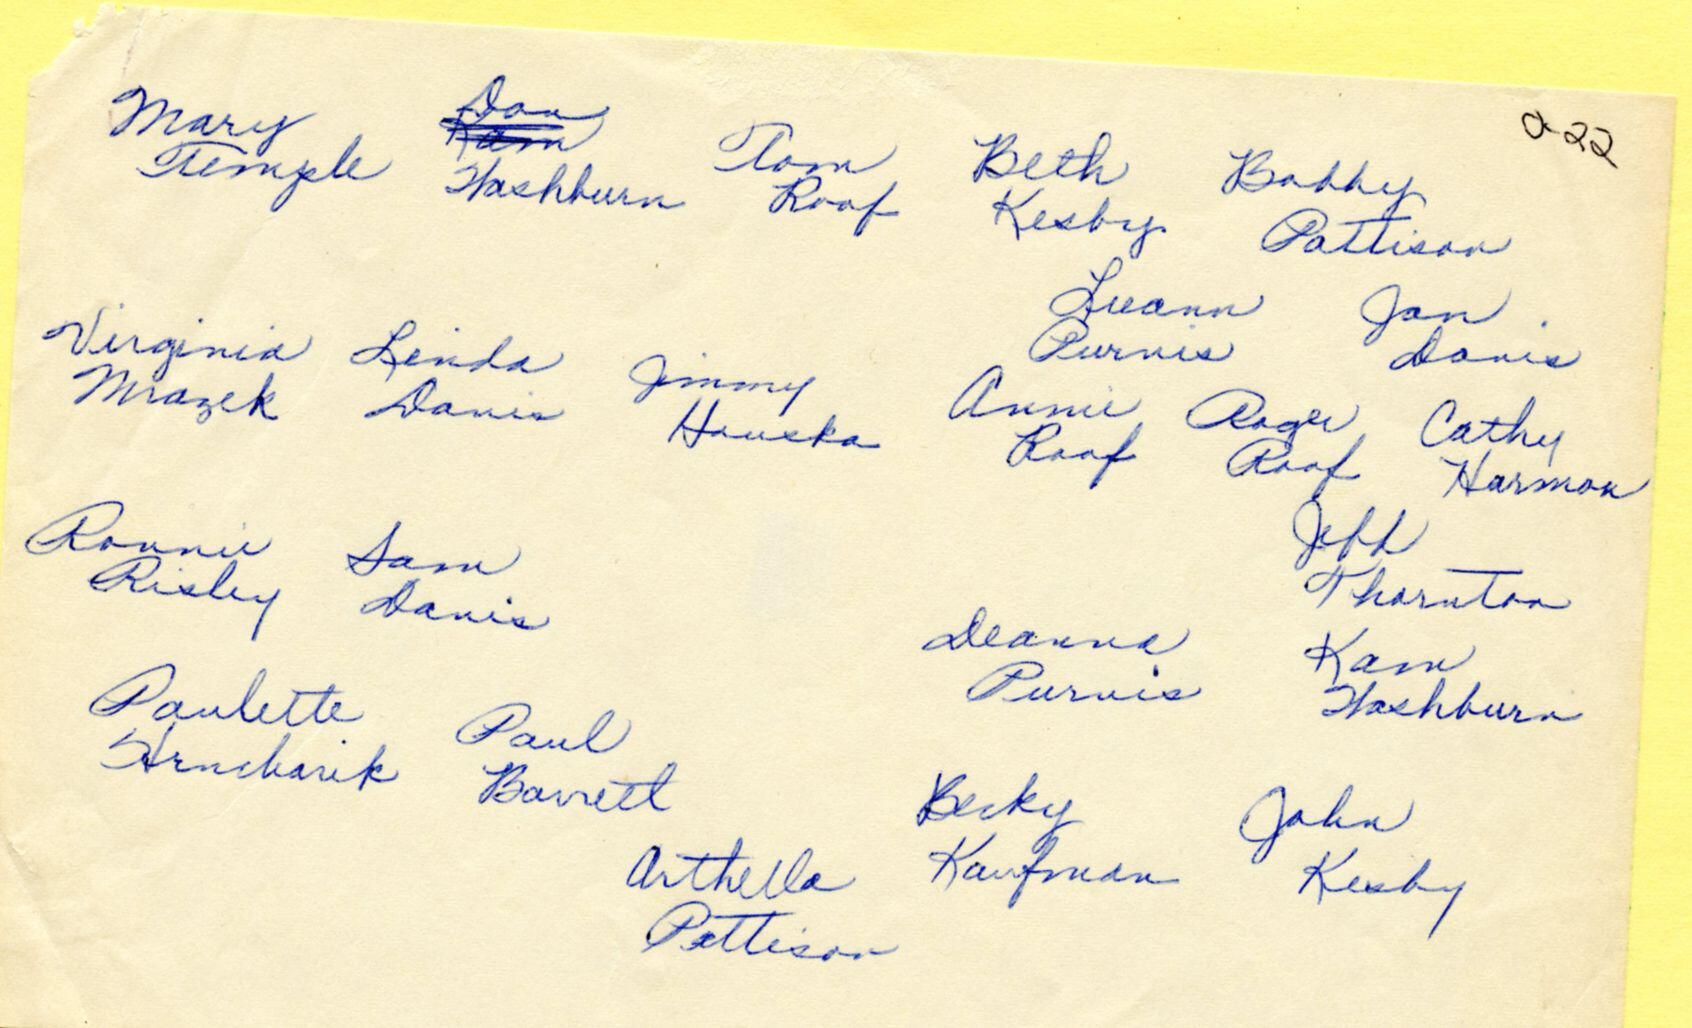 0-22
Mary Don Tom Beth Bobby
Kam
Temple Washburn Roof Kesby Pattison
Luann Jan
Purvis Davis
Virginia Linda Jimmy Annie Roger Cathy
Mrazek Davis Houska Roof Roof Harmon
Ronnie Sam Jeff
Risley Davis Thornton
Deanna Kam
Purvis Washburn
Paulette Paul Becky John
Hrncharik Barrett Kaufman Kesby
Arthella
Pattison